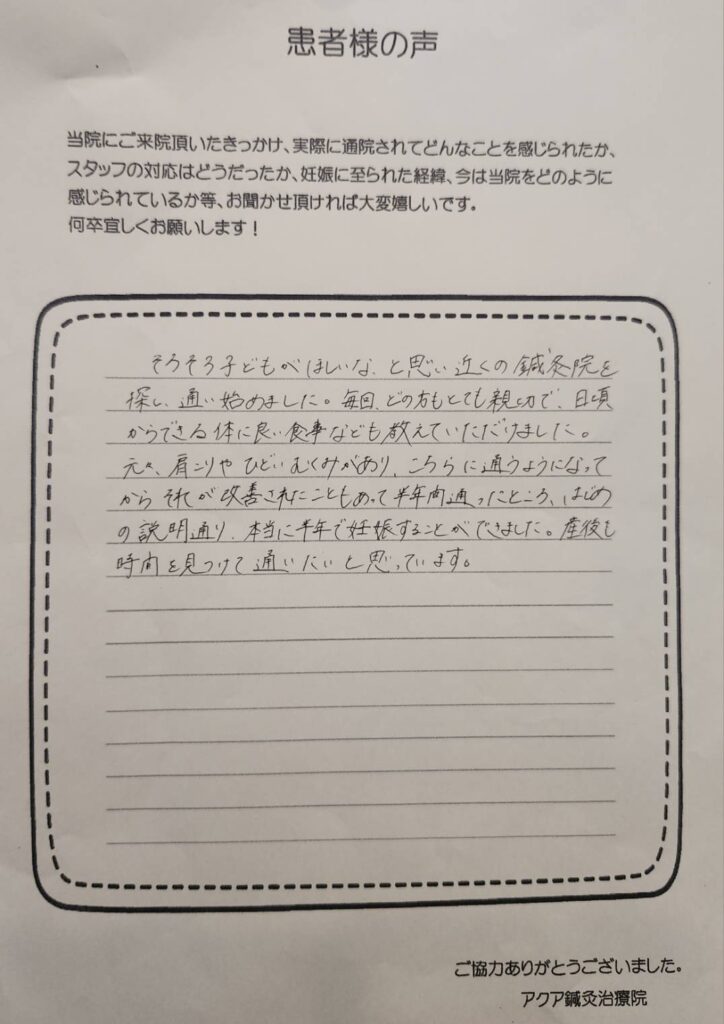 患者様の声
当院にご来院頂いたきっかけ、実際に通院されてどんなことを感じられたか、
スタッフの対応はどうだったか、妊娠に至られた経緯、今は当院をどのように
感じられているか等、お聞かせ頂ければ大変嬉しいです。
何卒宜しくお願いします！
そろそろ子どもがほしいな、と思い近くの鍼灸院を
探し、通い始めました。毎回、どの方もとても親切で、日頃
からできる体に良い食事なども教えていただけました。
元々、肩こりやひどいむくみがあり、こちらに通うようになって
からそれが改善されたこともあって半年間通ったところ、はじめ
の説明通り、本当に半年で妊娠することができました。産後も
時間を見つけて通いたいと思っています。
ご協力ありがとうございました。
アクア鍼灸治療院